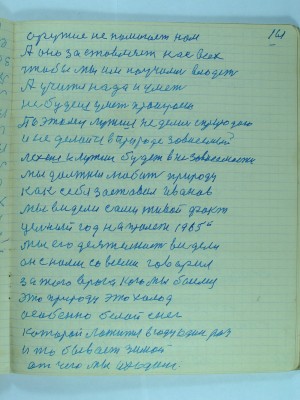 161
оружие не помогает нам
А оно заставляет нас всех
чтобы мы им научили владет
А учится нада и умет
не будеш умет проиграеш
Поэтому лутше не дели с природою
и не делайся в природе зависемой
легше и лутше будет в независемости
мы должны любит природу
как себя заставил Иванов
мы видели самы живой факт
целый год на пролет 1965
мы его деятелност видели
он с нами со всеми говорил
за того врага кого мы боимся
это природу это холод
особенно белой снег
которай ложится в году один раз
и то бывает зимой
от чего мы уходим